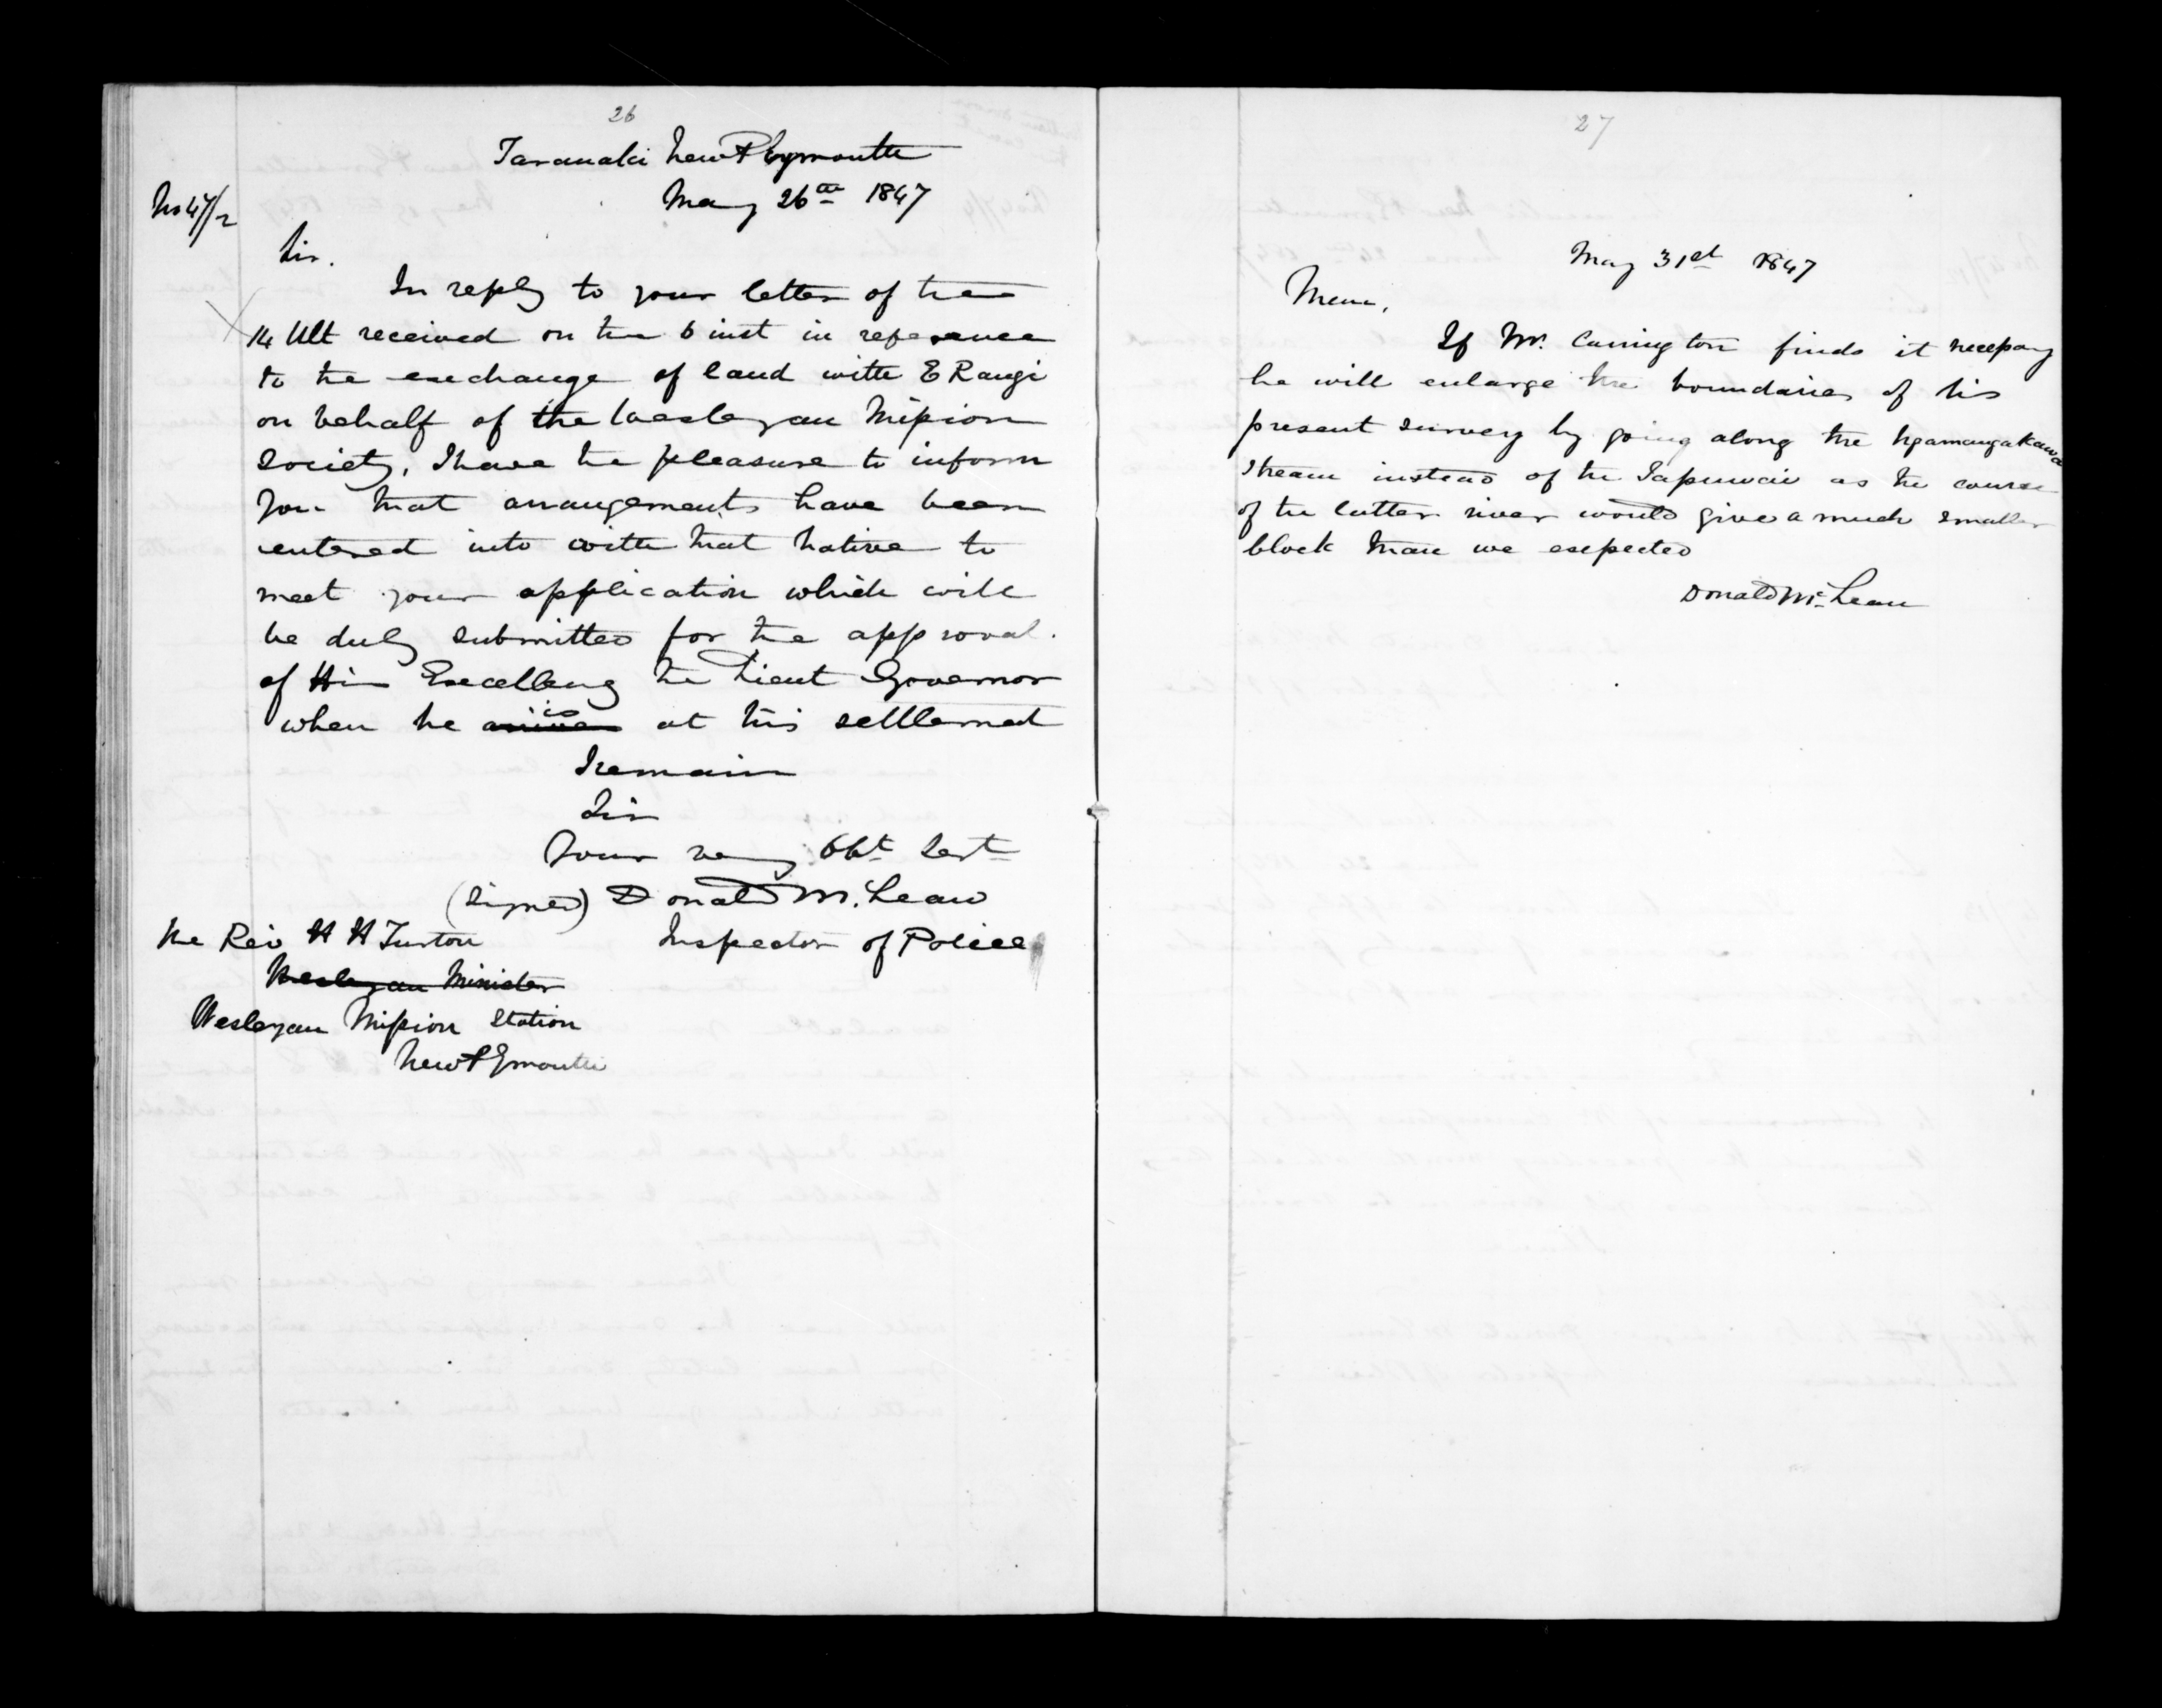 26
Taranaki New Plymouth
No 47/2
May 26th 1847
Sir.
In reply to your letter of the
14 Ult received on the 6 inst in reference
to the exchange of land with E Rangi
on behalf of the Wesleyan Mission
Society, I have the pleasure to inform
you that arrangements have been
entered into with that native to
meet your application which will
be duly submitted for the approval.
of His Excellency the Lieut Governor
is
when he arrives at this settlement
I remain
Sir
Your very Obt Servt
(Signed) Donald McLean
The Rev H H Turton
Inspector of Police
Wesleyan Minister
Wesleyan Mission Station
New Plymouth
27
May 31st 1847
Memo,
If Mr. Carrington finds it necessary
he will enlarge the boundaries of his
present survey by going along the Ngamangakawa
Stream instead of the Tapuwai as the course
of the latter river would give a much smaller
block than we expected
Donald McLean